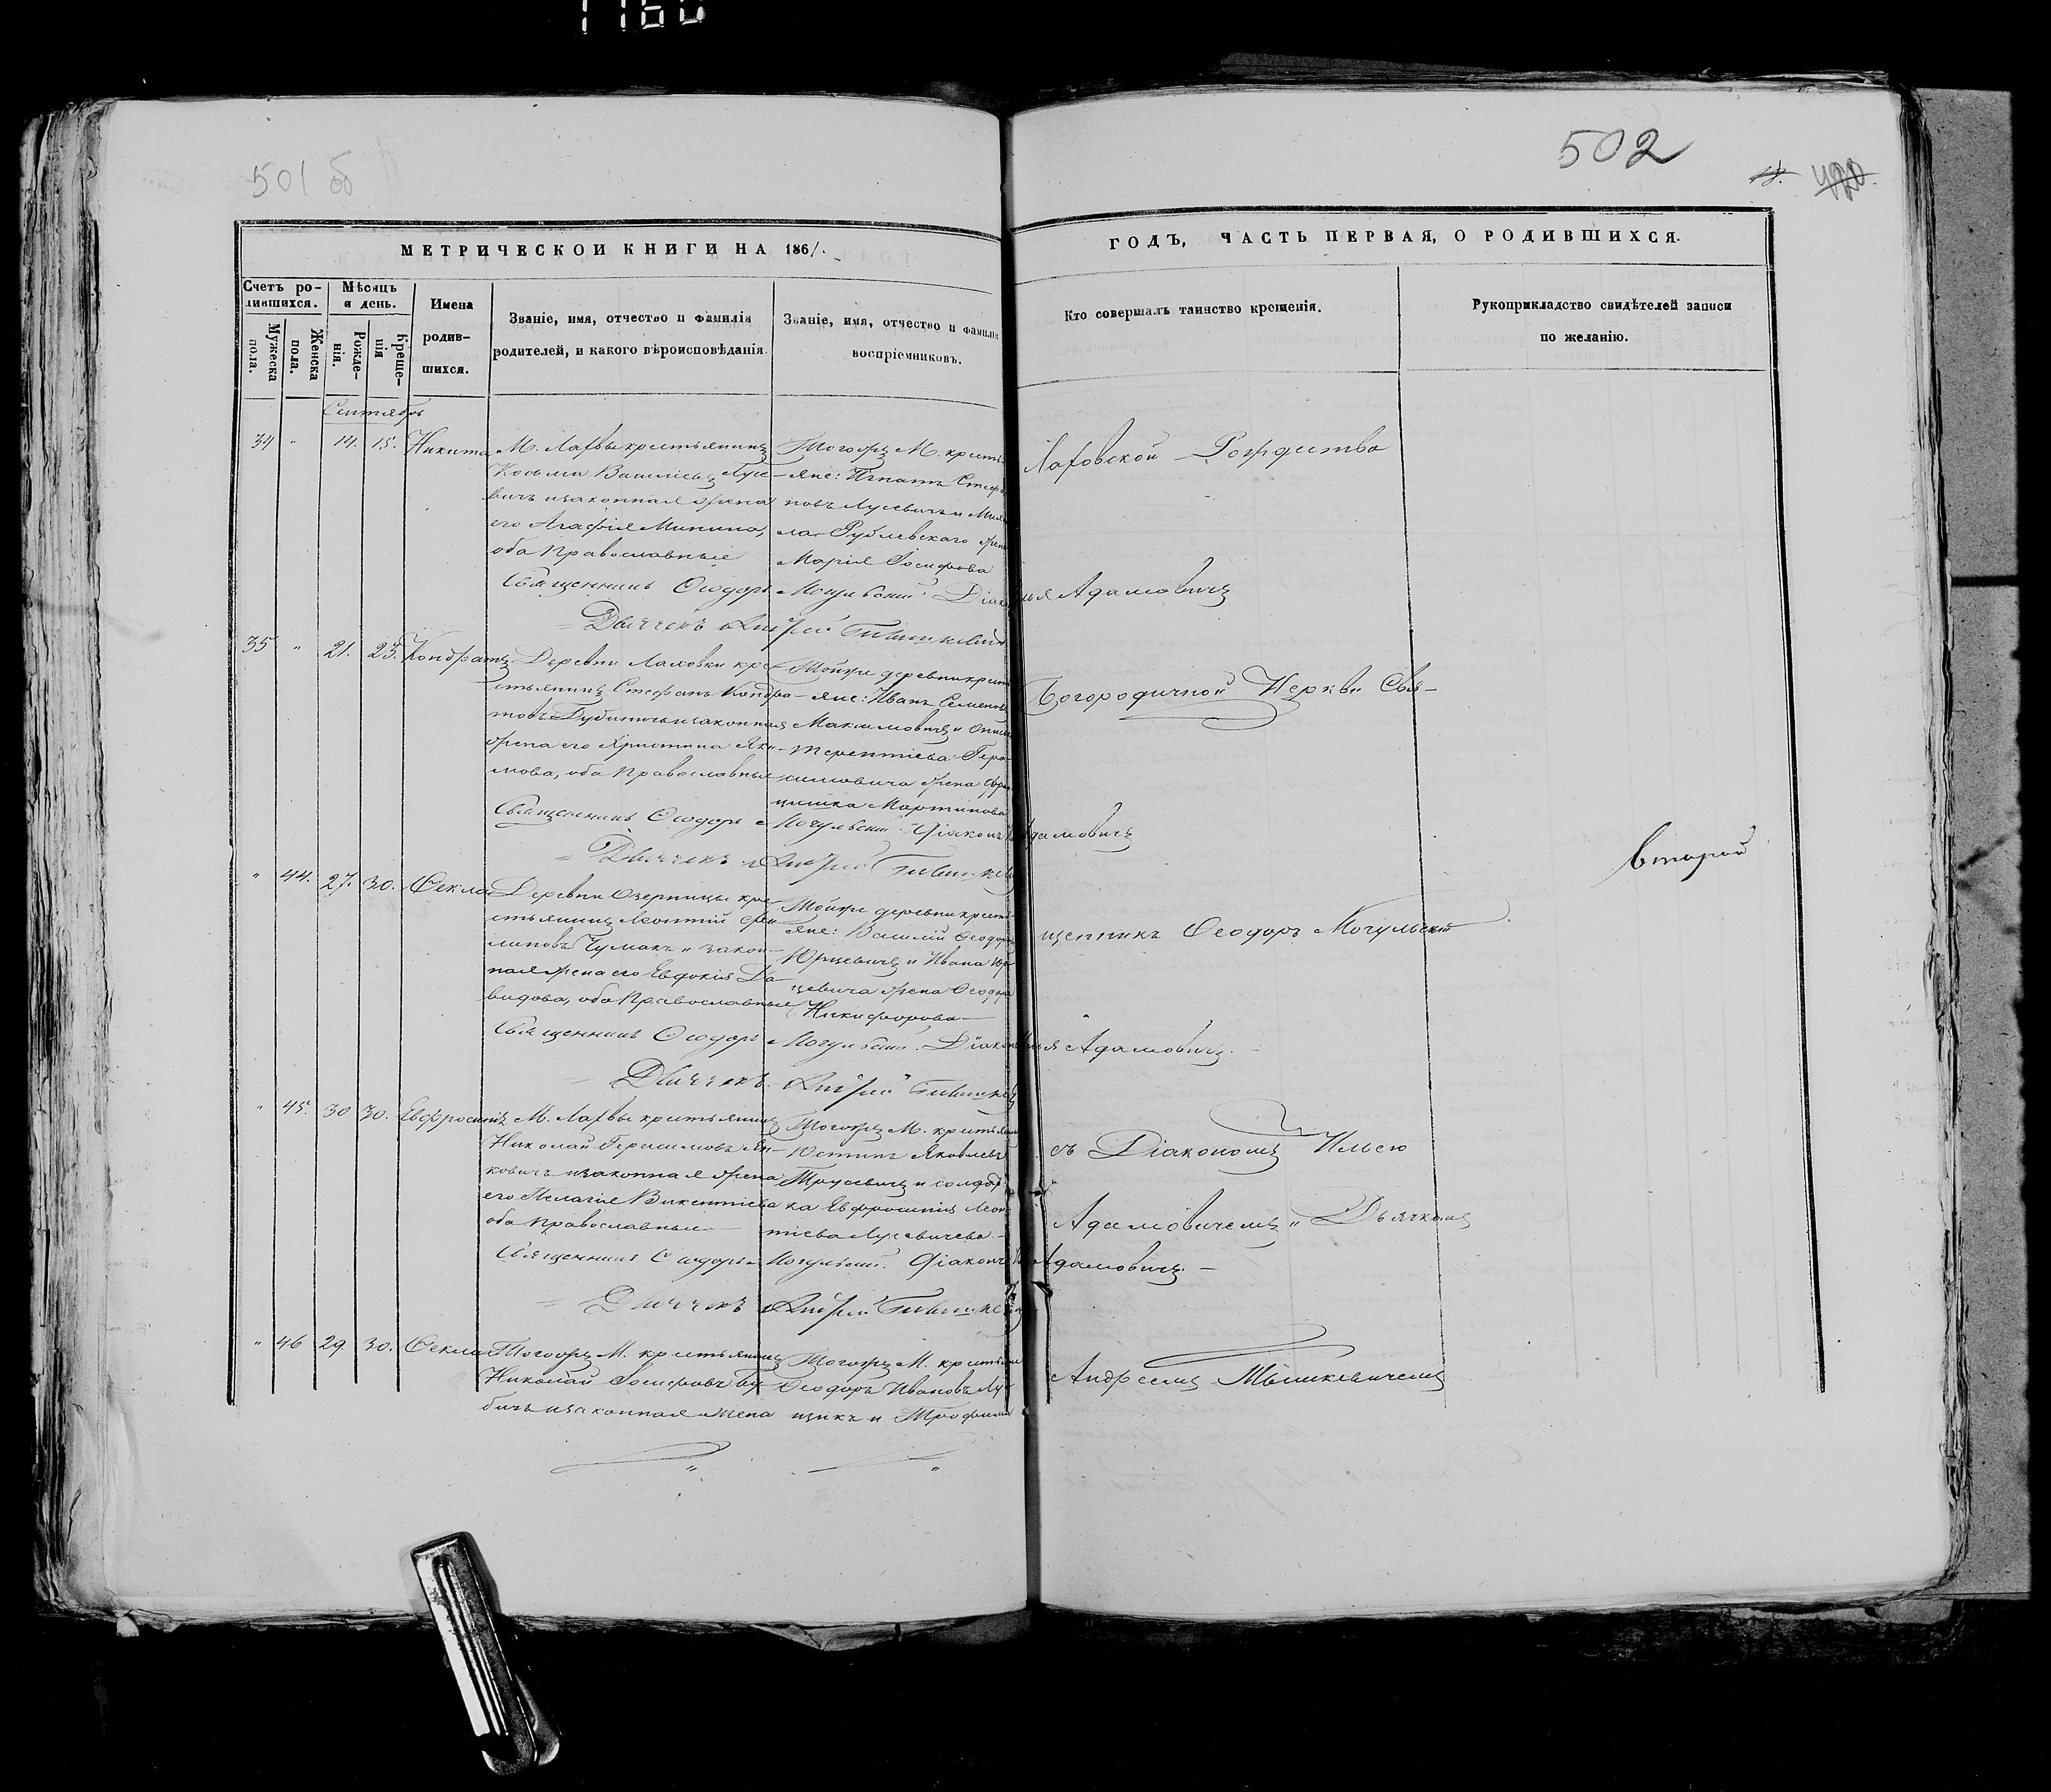 1160
501 об
502
МЕТРИЧЕСКОЙ КНИГИ НА 1861.
ГОДЪ, ЧАСТЬ ПЕРВАЯ, О РОДИВШИХСЯ.
Счетъ ро-
дившихся.
Мужеска пола.
Женска пола.
Мѣсяцъ
и день.
Рожде-
нія.
Креще-
нія
Имена
родив-
шихся.
Званіе, имя, отчество и фамилія
родителей, и какого вѣроисповѣданія.
Званіе, имя, отчество и фамилія
воспріемниковъ.
Кто совершалъ таинство крещенія.
Рукоприкладство свидѣтелей записи
по желанію.
Сентябрь
34 " 14. 15. Никита
М. Лахвы крестьянинъ
Косьма Васильевъ Лусе-
вичъ и законная жена
его Агафія Минина,
оба Православные
Тогожъ М. кресть-
яне: Игнатъ
новъ Лусевичъ и
Рублевскаго жена
Марія Іосифова
Лаховской Рождество
Священникъ Ѳеодоръ Могульскій. Адамовичъ
Дьячекъ Андрей
35 " 21. 23. Кондратъ
Деревни Лаховки кре-
стьянинъ Стефанъ Кондра-
товъ и законная
жена его Христина Яки-
мова, оба Православные
Тойже деревни крест
яне: Иванъ Семеновъ
Максимовичъ и
Терентіева Гера-
симовича жена
Мартинова
Богородичной Церкви Свя-
Священникъ Ѳеодоръ Могульскій Діаконъ Адамовичъ
Дьячекъ Андрей
второй
" 44. 27. 30. Ѳекла
Деревни Озерницы кре-
стьянинъ Леонтій
Чумакъ и закон-
ная жена его Евдокія Да-
видова, оба Православные
Тойже деревни кресть-
яне: Василій Ѳеодоровъ
Юрцевичъ и Ивана Юр-
цевича жена Ѳеодора
Никифорова
щенникъ Ѳеодоръ Могульскій
Священникъ Ѳеодоръ Могульскій. Діаконъ Илья Адамовичъ.
Дьячекъ Андрей
" 45. 30 30. Евфросинія
М. Лахвы крестьянинъ
Николай Герасимовъ Ян-
ковичъ и законная жена
его Пелагія Викентіева
оба Православные
Тогожъ М. крестьяне
Юстинъ Яковлевъ
Трусевичъ и солдат-
ка Евфросинія Леон-
тіева Лусевичева
съ Діакономъ Ильею
Адамовичемъ и Дьячкомъ
Священникъ Ѳеодоръ Могульскій. Діаконъ Адамовичъ.
Дьячекъ Андрей
" 46 29. 30. Ѳекла
Тогожъ М. крестьянинъ
Николай Іосифовъ
бичъ и законная жена
Тогожъ М. крестьяне
Ѳеодоръ Ивановъ Лу-
щикъ и Трофима
Андреемъ Мышкевичемъ